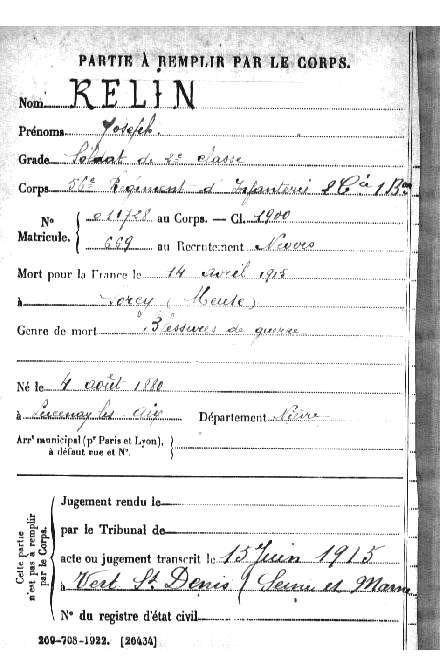 PARTIE À REMPLIR PAR LE CORPS.
Nom RELIN
Prénoms Joseph.
Grade Soldat de 2e classe
Corps 56e Régiment d'Infanterie 2 Cie 1 Bon
No Matricule. { 021728 au Corps. — Cl. 1900
669 au Recrutement Nevers
Mort pour la France le 14 avril 1915
à Sorcy (Meuse)
Genre de mort Blessures de guerre
Né le 4 août 1880
à Lucenay les Aix Département Nièvre
Arrt municipal (pr Paris et Lyon), à défaut rue et No.
Cette partie n'est pas à remplir par le Corps.
Jugement rendu le
par le Tribunal de
acte ou jugement transcrit le 15 Juin 1915
à Vert St Denis (Seine et Marne
No du registre d'état civil
260-708-1922. [26434]